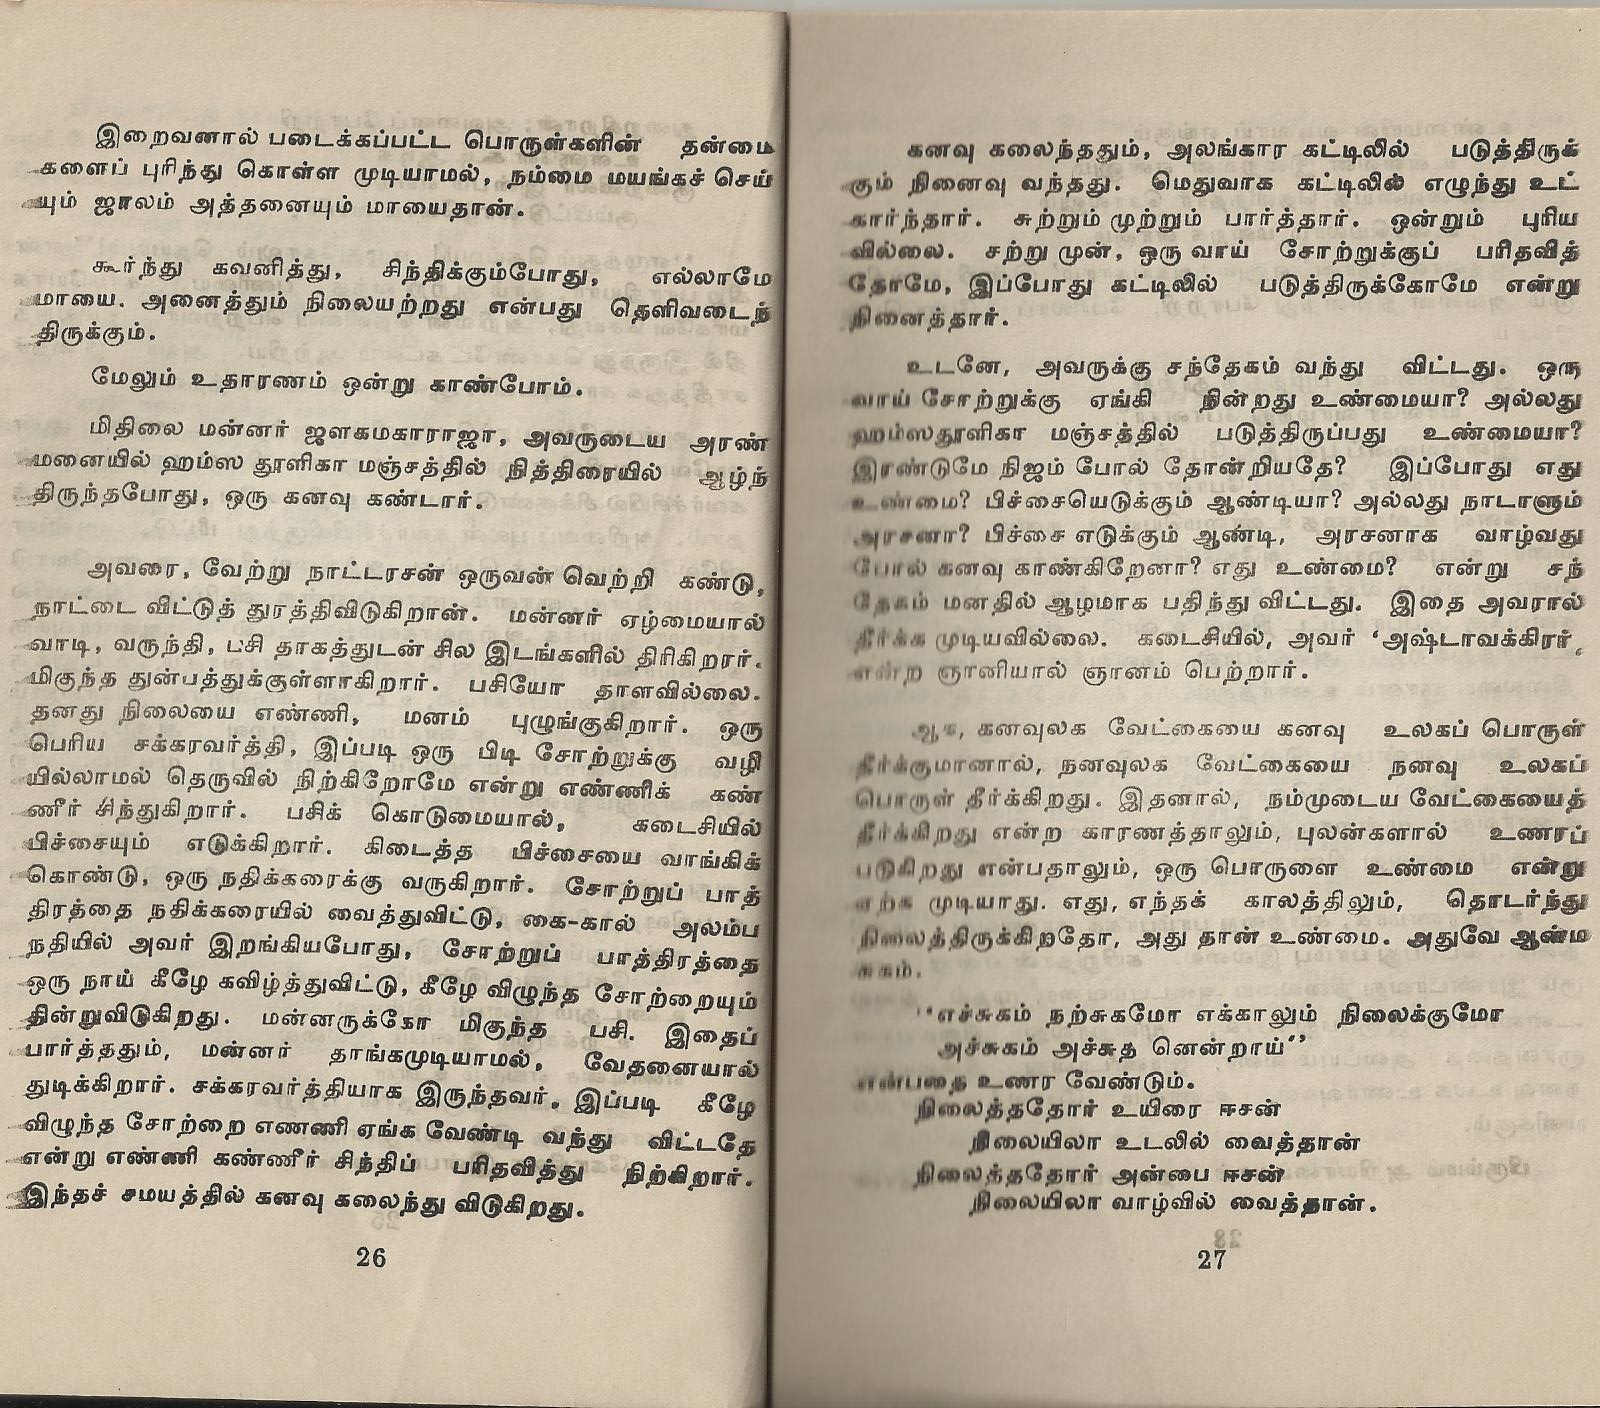 இறைவனால் படைக்கப்பட்ட பொருள்களின் தன்மை
களைப் புரிந்து கொள்ள முடியாமல், நம்மை மயங்கச் செய்
யும் ஜாலம் அத்தனையும் மாயைதான்.
கூர்ந்து கவனித்து, சிந்திக்கும்போது, எல்லாமே
மாயை. அனைத்தும் நிலையற்றது என்பது தெளிவடைந்
திருக்கும்.
மேலும் உதாரணம் ஒன்று காண்போம்.
மிதிலை மன்னர் ஜனகமகாராஜா, அவருடைய அரண்
மனையில் ஹம்ஸ தூளிகா மஞ்சத்தில் நித்திரையில் ஆழ்ந்
திருந்தபோது, ஒரு கனவு கண்டார்.
அவரை, வேற்று நாட்டரசன் ஒருவன் வெற்றி கண்டு,
நாட்டை விட்டுத் துரத்திவிடுகிறான். மன்னர் ஏழ்மையால்
வாடி, வருந்தி, பசி தாகத்துடன் சில இடங்களில் திரிகிறார்.
மிகுந்த துன்பத்துக்குள்ளாகிறார். பசியோ தாளவில்லை.
தனது நிலையை எண்ணி, மனம் புழுங்குகிறார். ஒரு
பெரிய சக்கரவர்த்தி, இப்படி ஒரு பிடி சோற்றுக்கு வழி
யில்லாமல் தெருவில் நிற்கிறோமே என்று எண்ணிக் கண்
ணீர் சிந்துகிறார். பசிக் கொடுமையால், கடைசியில்
பிச்சையும் எடுக்கிறார். கிடைத்த பிச்சையை வாங்கிக்
கொண்டு, ஒரு நதிக்கரைக்கு வருகிறார். சோற்றுப் பாத்
திரத்தை நதிக்கரையில் வைத்துவிட்டு, கை-கால் அலம்ப
நதியில் அவர் இறங்கியபோது, சோற்றுப் பாத்திரத்தை
ஒரு நாய் கீழே கவிழ்த்துவிட்டு, கீழே விழுந்த சோற்றையும்
தின்றுவிடுகிறது. மன்னருக்கோ மிகுந்த பசி. இதைப்
பார்த்ததும், மன்னர் தாங்கமுடியாமல், வேதனையால்
துடிக்கிறார். சக்கரவர்த்தியாக இருந்தவர், இப்படி கீழே
விழுந்த சோற்றை எண்ணி ஏங்க வேண்டி வந்து விட்டதே
என்று எண்ணி கண்ணீர் சிந்திப் பரிதவித்து நிற்கிறார்.
இந்தச் சமயத்தில் கனவு கலைந்து விடுகிறது.
26
கனவு கலைந்ததும், அலங்கார கட்டிலில் படுத்திருக்
கும் நினைவு வந்தது. மெதுவாக கட்டிலில் எழுந்து உட்
கார்ந்தார். சுற்றும் முற்றும் பார்த்தார். ஒன்றும் புரிய
வில்லை. சற்று முன், ஒரு வாய் சோற்றுக்குப் பரிதவித்
தோமே, இப்போது கட்டிலில் படுத்திருக்கோமே என்று
நினைத்தார்.
உடனே, அவருக்கு சந்தேகம் வந்து விட்டது. ஒரு
வாய் சோற்றுக்கு ஏங்கி நின்றது உண்மையா? அல்லது
ஹம்ஸதூளிகா மஞ்சத்தில் படுத்திருப்பது உண்மையா?
இரண்டுமே நிஜம் போல் தோன்றியதே? இப்போது எது
உண்மை? பிச்சையெடுக்கும் ஆண்டியா? அல்லது நாடாளும்
அரசனா? பிச்சை எடுக்கும் ஆண்டி, அரசனாக வாழ்வது
போல் கனவு காண்கிறேனா? எது உண்மை? என்று சந்
தேகம் மனதில் ஆழமாக பதிந்து விட்டது. இதை அவரால்
தீர்க்க முடியவில்லை. கடைசியில், அவர் ‘அஷ்டாவக்கிரர்,
என்ற ஞானியால் ஞானம் பெற்றார்.
ஆக, கனவுலக வேட்கையை கனவு உலகப் பொருள்
தீர்க்குமானால், நனவுலக வேட்கையை நனவு உலகப்
பொருள் தீர்க்கிறது. இதனால், நம்முடைய வேட்கையைத்
தீர்க்கிறது என்ற காரணத்தாலும், புலன்களால் உணரப்
படுகிறது என்பதாலும், ஒரு பொருளை உண்மை என்று
ஏற்க முடியாது. எது, எந்தக் காலத்திலும், தொடர்ந்து
நிலைத்திருக்கிறதோ, அது தான் உண்மை. அதுவே ஆன்ம
சுகம்.
“எச்சுகம் நற்சுகமோ எக்காலும் நிலைக்குமோ
அச்சுகம் அச்சுத னென்றாய்”
என்பதை உணர வேண்டும்.
நிலைத்ததோர் உயிரை ஈசன்
நிலையிலா உடலில் வைத்தான்
நிலைத்ததோர் அன்பை ஈசன்
நிலையிலா வாழ்வில் வைத்தான்.
27